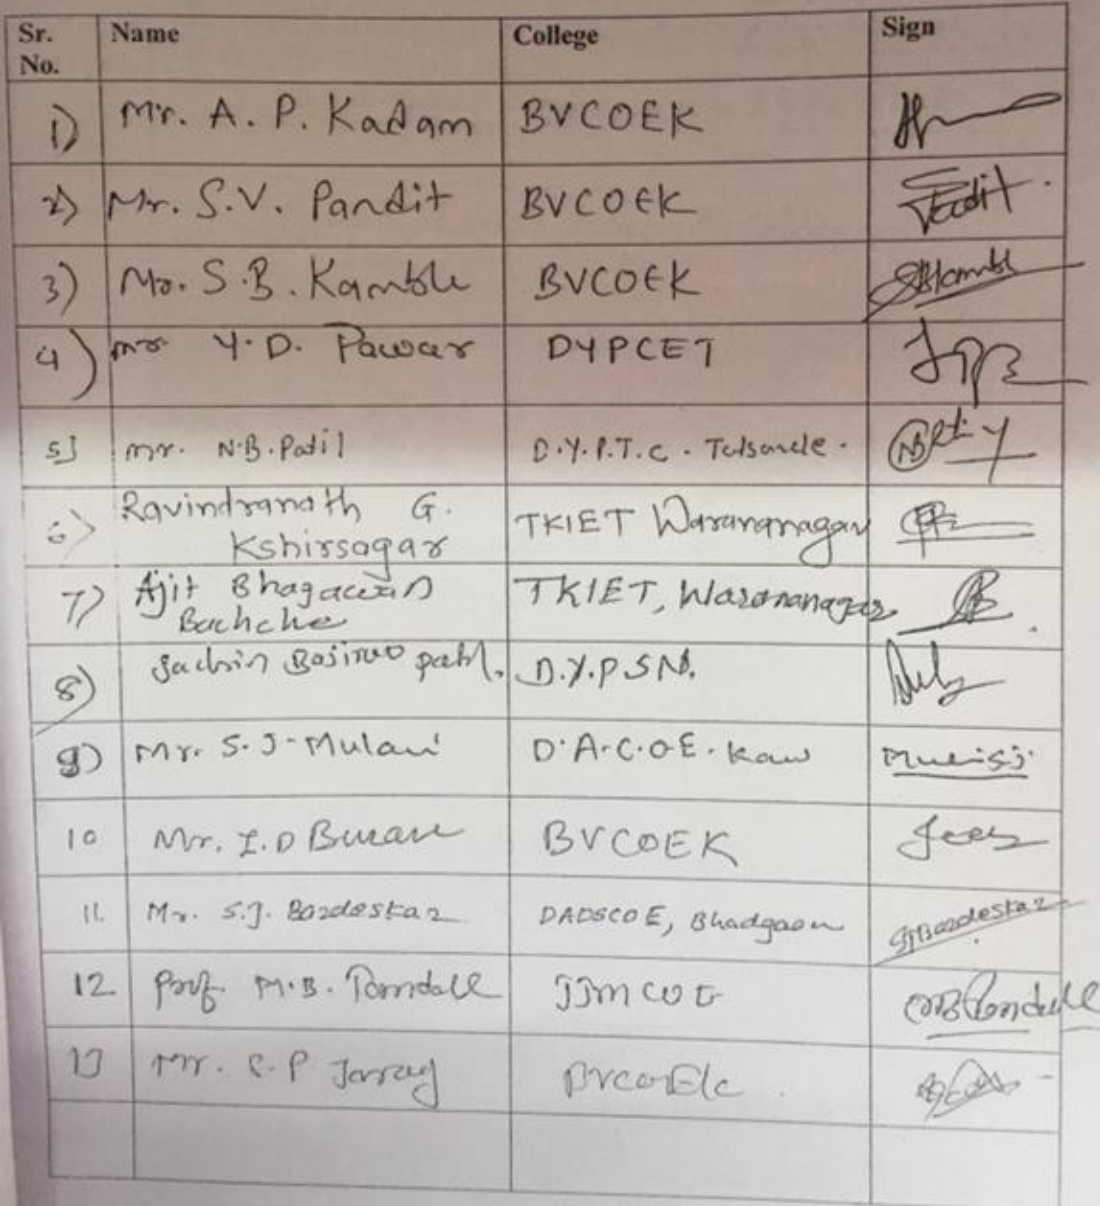 Sr. No. Name College Sign
1) Mr. A. P. Kadam BVCOEK
2) Mr. S.V. Pandit BVCOEK
3) Mr. S.B. Kamble BVCOEK
4) mr Y.D. Pawar DYPCET
5] mr. N.B. Patil D.Y.P.T.C. Talsande.
6) Ravindranath G.
Kshirsagar TKIET Warananagar
7) Ajit Bhagawan
Bachche TKIET, Warananagar
8) Sachin patil. D.Y.P S N.
9) Mr. S. J. Mulani D.A.C.O.E. Karad
10 Mr. I. D Buran BVCOEK
11. Mr. S.J. Bardeskar DADSCOE, Bhadgaon
12 Prof. M.B. JJMCOE
13 Mr. C. P. Jarag BVCOEK